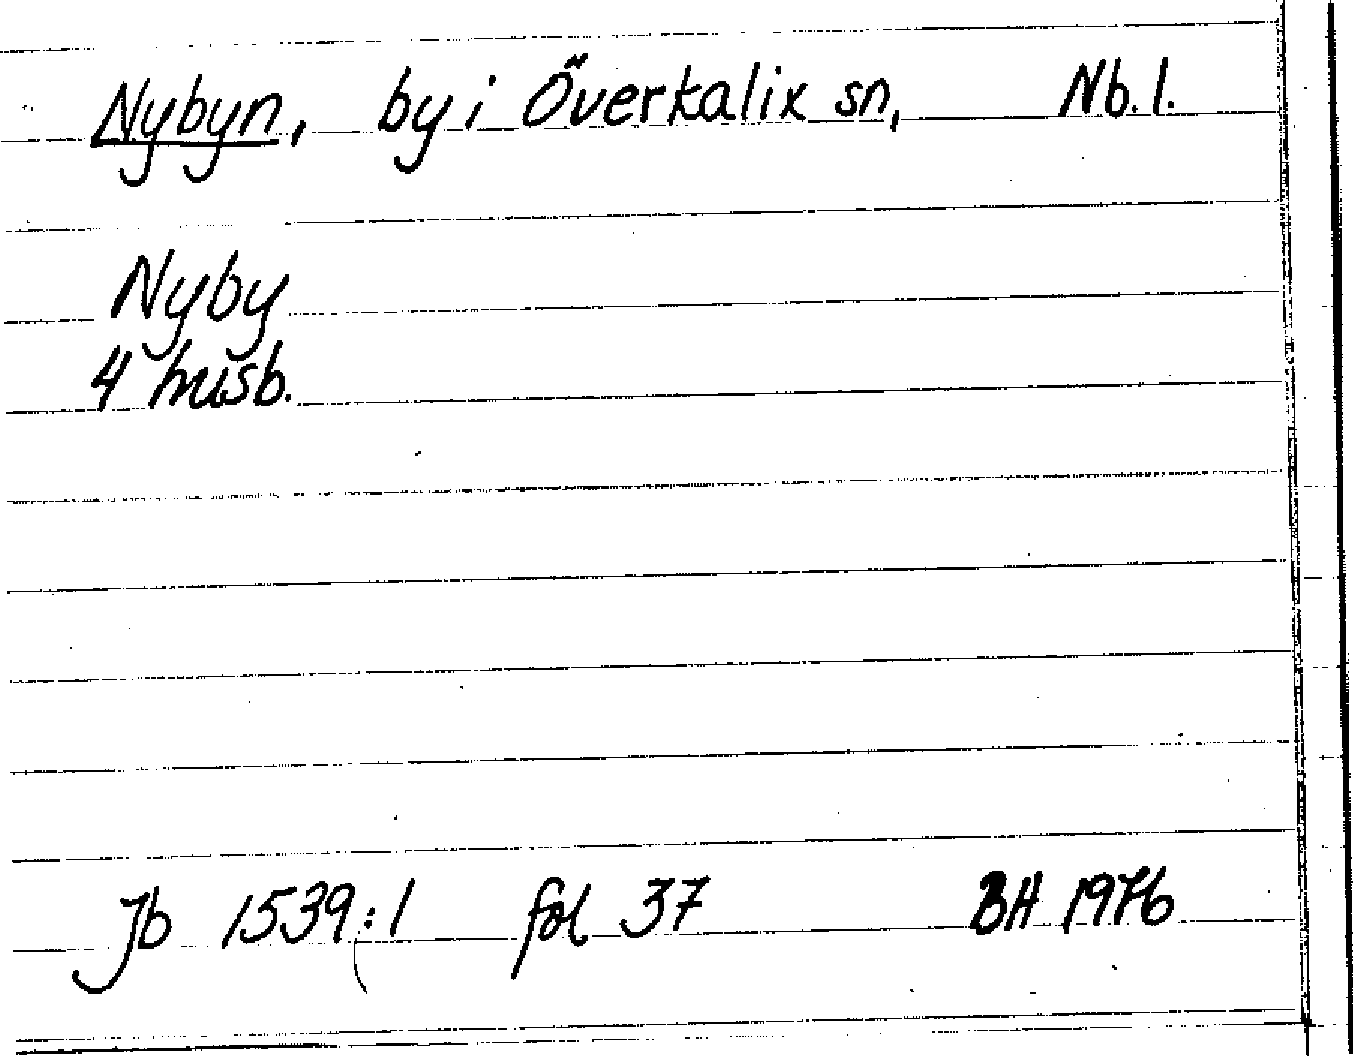 Nybyn, by i Överkalix sn, Nb. l.
Nyby
4 husb.
Jb 1539:1 fol 37 BH 1976